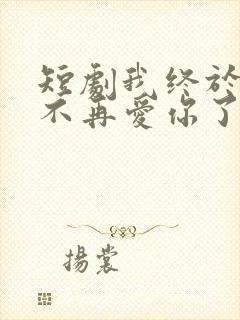 短劇我终於
不再愛你了
揚裳